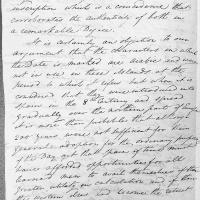 inscription which is a coincidence that
corroborates the authenticity of both in
a remarkable degree.
It is certainly an objection to our
argument that the characters in which
the Date is marked are Arabic and were
not in use in these Islands at the
period to which it refers but when it is
considered that they were introduced into
Spain in the 8th Century and spread
gradually over the northern parts of Europe
it is more than probable that although
200 years were not sufficient for their
general adoption for the ordinary
of the Day yet that space of time must
have afforded opportunities for all
learned men to avail themselves of their
greater utility on calculations and of
the system